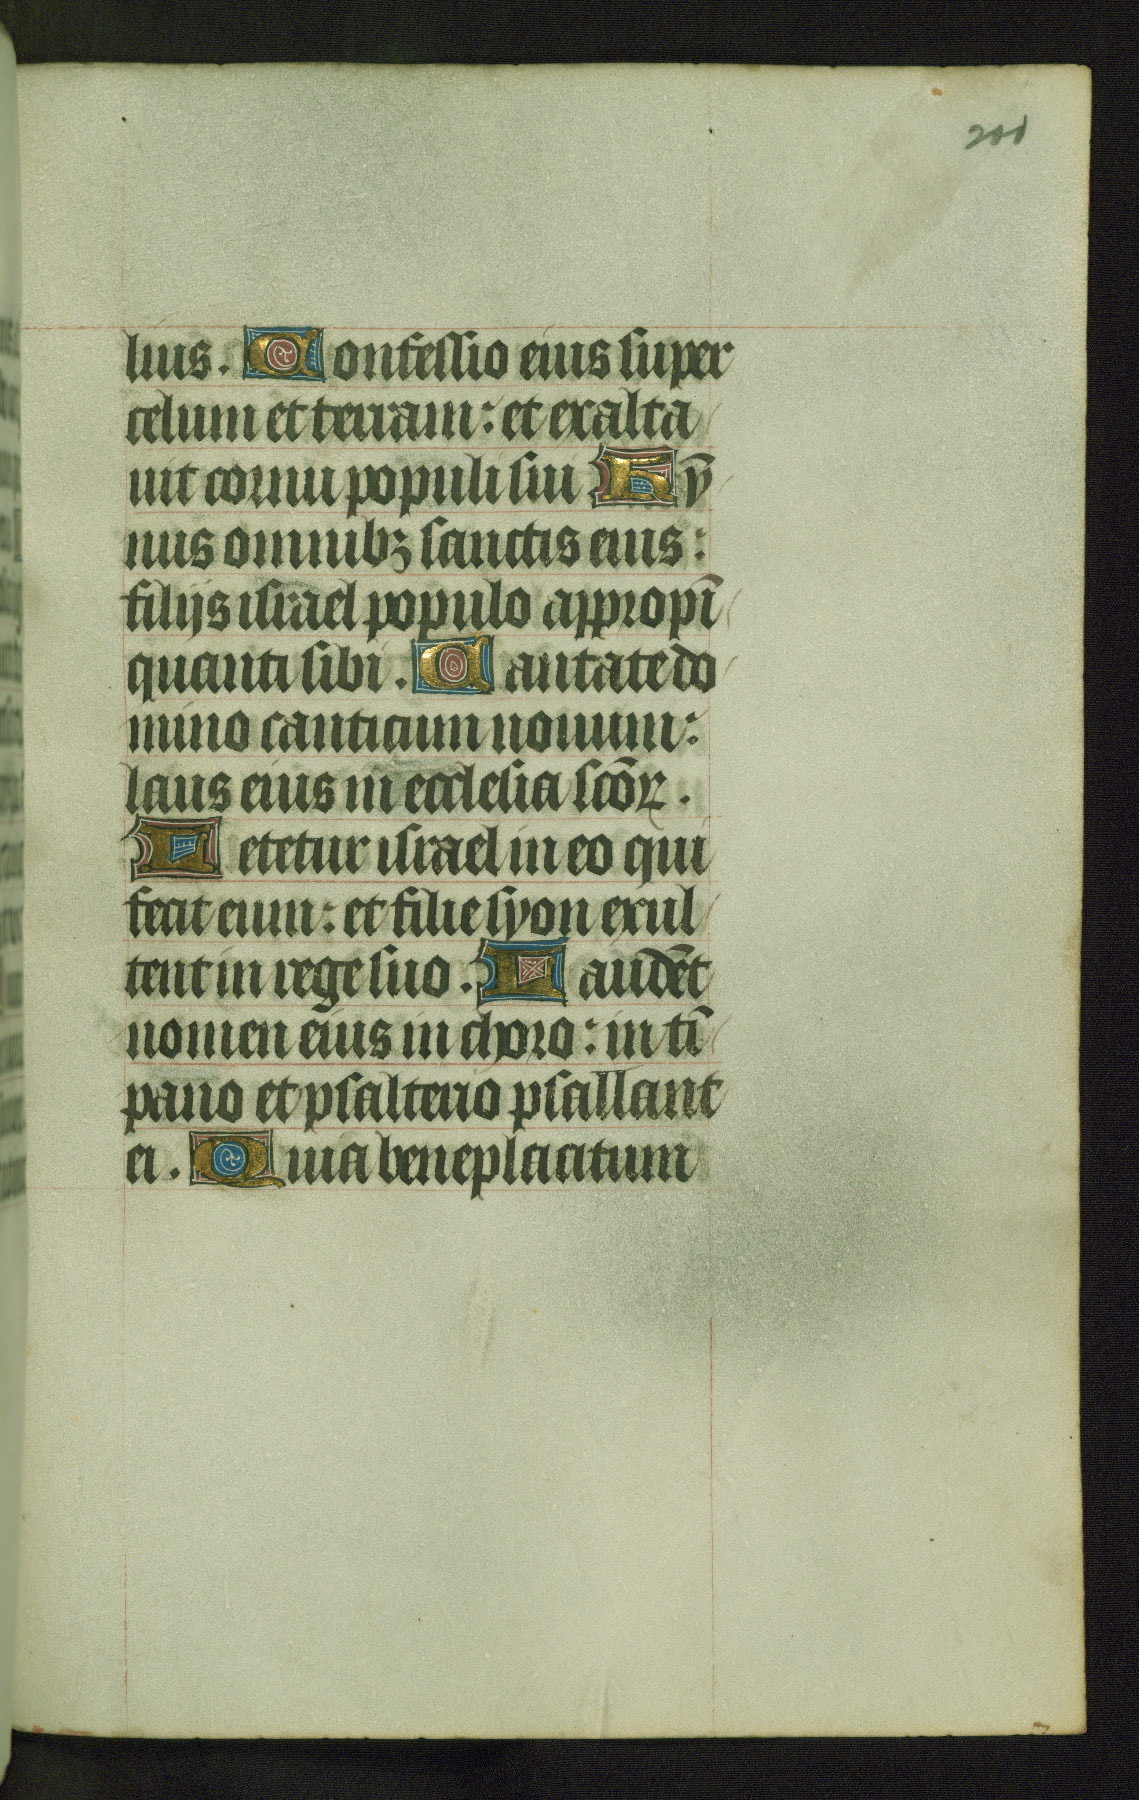 201
lius. Confessio eius super
celum et terram: et exalta
uit cornu populi sui. Hȳ
nus omnibꝫ sanctis eius:
filijs israel populo appropī
quanti sibi. Cantate do
mino canticum nouum:
laus eius in ecclesia scōꝝ.
Letetur israel in eo qui
fecit eum: et filie syon exul
tent in rege suo. Laudēt
nomen eius in choro: in tī
pano et psalterio psallant
ei. Quia beneplacitum